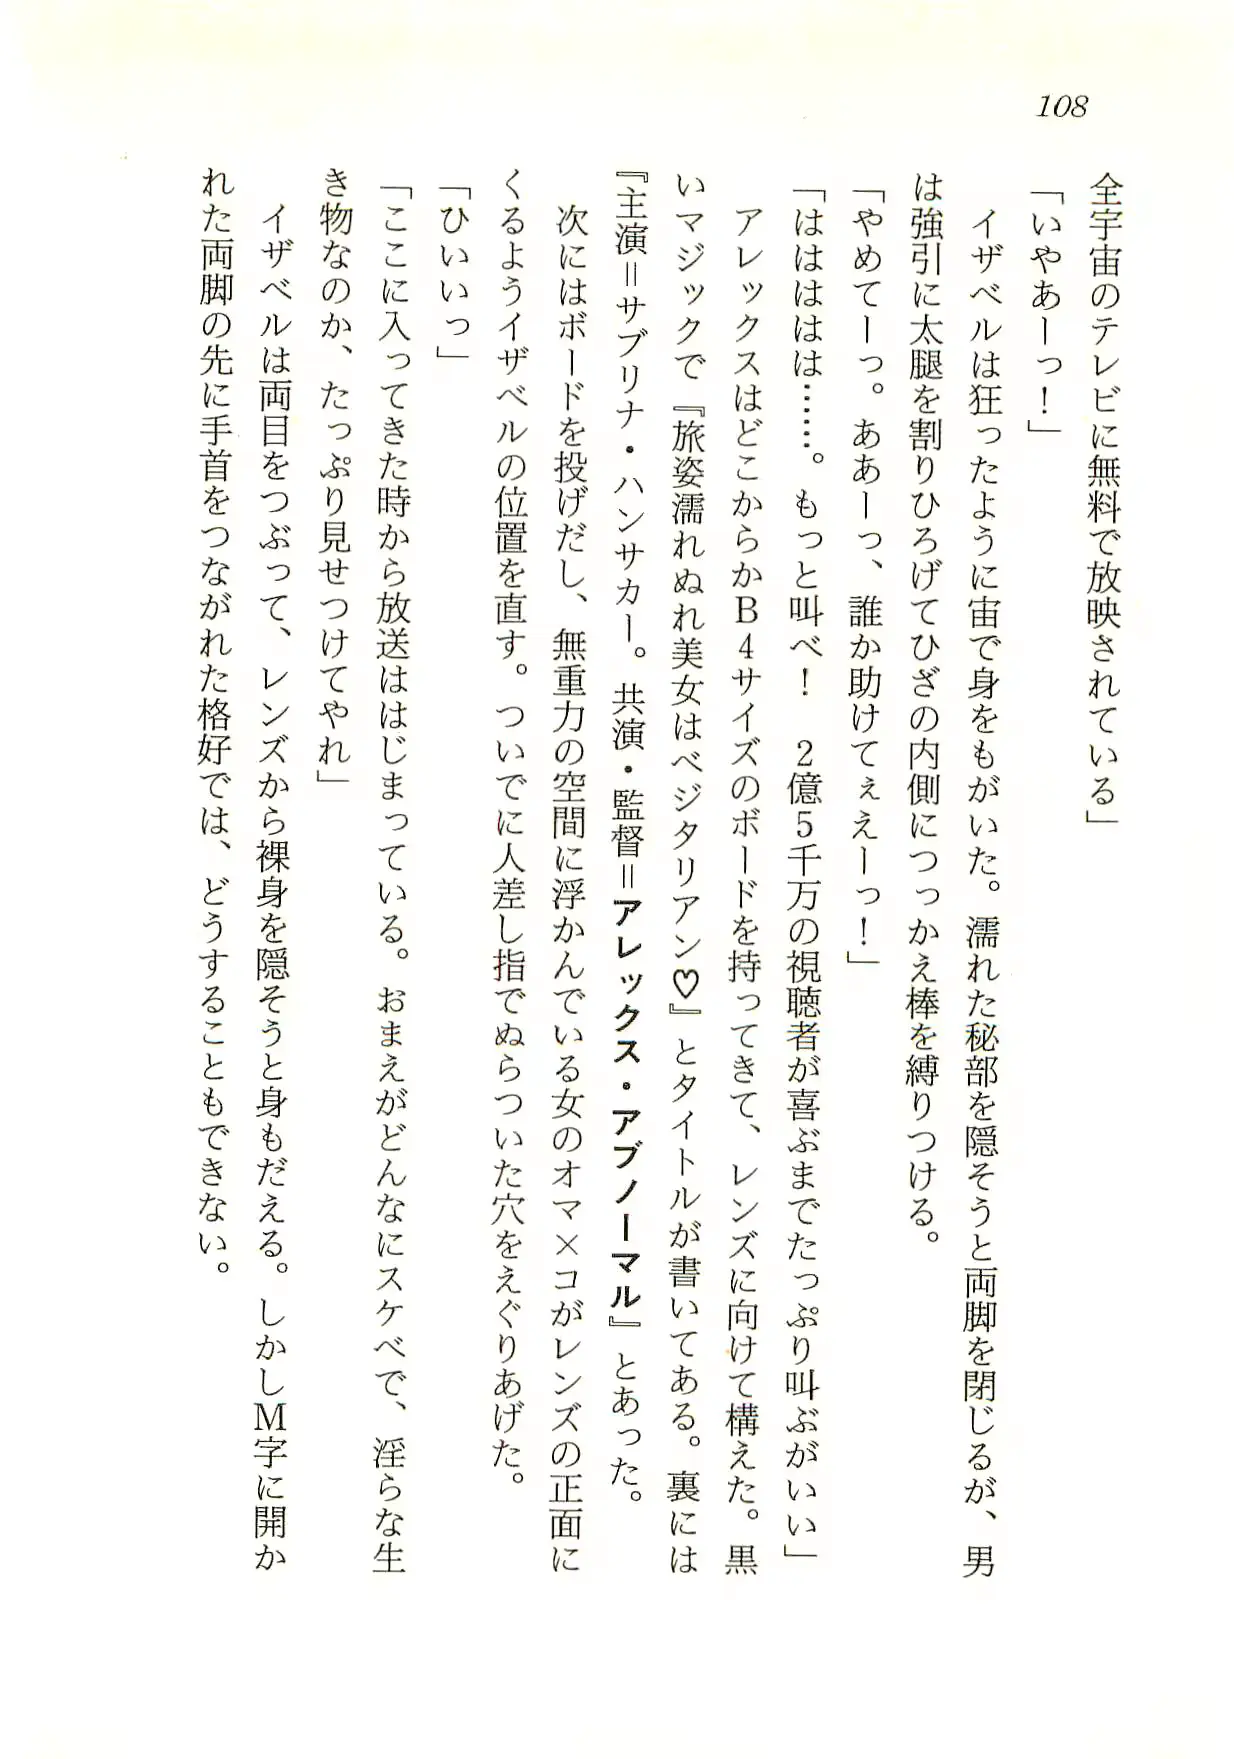 108
全宇宙のテレビに無料で放映されている」
「いやあーっ！」
イザベルは狂ったように宙で身をもがいた。濡れた秘部を隠そうと両脚を閉じるが、男
は強引に太腿を割りひろげてひざの内側につっかえ棒を縛りつける。
「やめてーっ。ああーっ、誰か助けてぇえーっ！」
「はははは……。もっと叫べ！　2億5千万の視聴者が喜ぶまでたっぷり叫ぶがいい」
アレックスはどこからかB4サイズのボードを持ってきて、レンズに向けて構えた。黒
いマジックで『旅姿濡れぬれ美女はベジタリアン♡』とタイトルが書いてある。裏には
『主演＝サブリナ・ハンサカー。共演・監督＝アレックス・アブノーマル』とあった。
次にはボードを投げだし、無重力の空間に浮かんでいる女のオマ×コがレンズの正面に
くるようイザベルの位置を直す。ついでに人差し指でぬらついた穴をえぐりあげた。
「ひいいっ」
「ここに入ってきた時から放送ははじまっている。おまえがどんなにスケベで、淫らな生
き物なのか、たっぷり見せつけてやれ」
イザベルは両目をつぶって、レンズから裸身を隠そうと身もだえる。しかしM字に開か
れた両脚の先に手首をつながれた格好では、どうすることもできない。